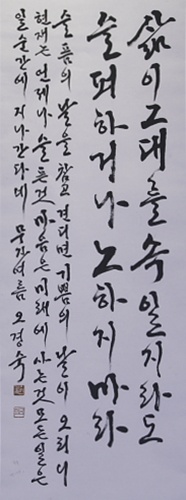 삶이그대를속일지라도
슬퍼하거나노하지마라
슬픔의 날을 참고 견디면 기쁨의 날이 오리니
현재는 언제나 슬픈것 마음은 미래에 사는것 모든일은
일순간에 지나간다네 무자여름 오경숙